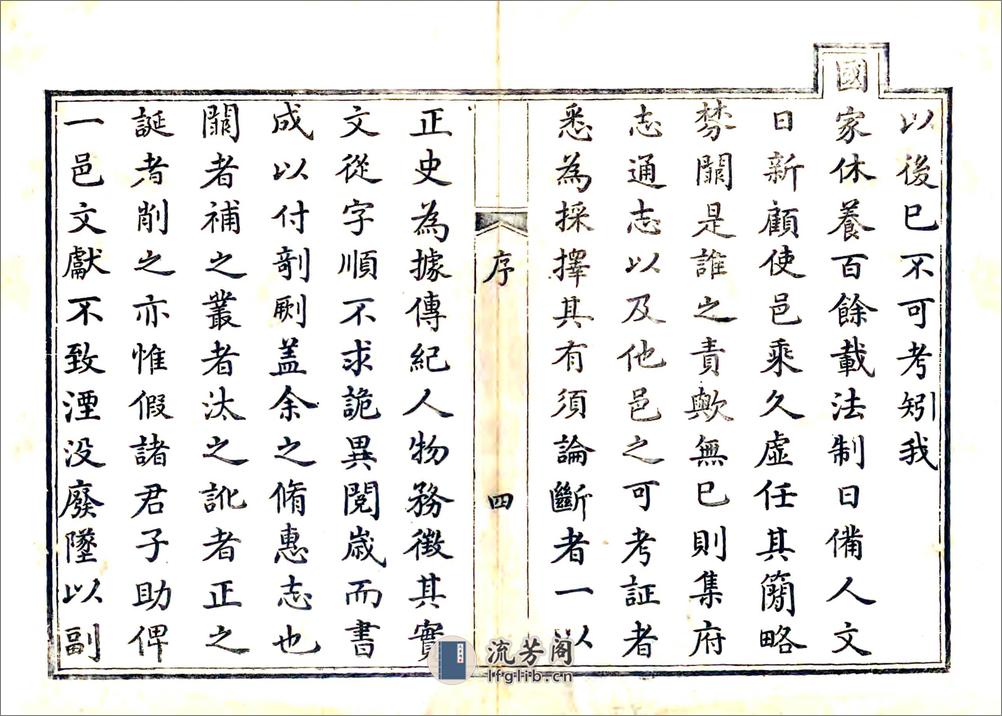 以後已不可考矧我
國家休養百餘載法制日備人文
日新顧使邑乘久虛任其簡略
棼闕是誰之責歟無已則集府
志通志以及他邑之可考証者
悉為採擇其有須論斷者一以
序 四
正史為據傳紀人物務徵其實
文從字順不求詭異閱歲而書
成以付剞劂盖余之脩惠志也
闕者補之叢者汰之訛者正之
誕者削之亦惟假諸君子助俾
一邑文獻不致湮没廢墜以副
流芳阁
lfglib.cn